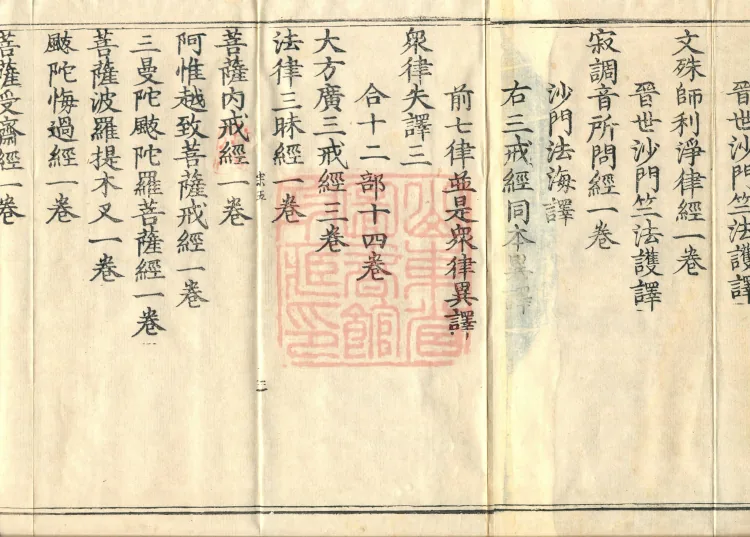 晉世沙門竺法護譯
文殊師利淨律經一卷
晉世沙門竺法護譯
寂調音所問經一卷
沙門法海譯
右三戒經同本異譯
前七律並是眾律異譯
眾律失譯三
合十二部十四卷
大方廣三戒經三卷
法律三昧經一卷
菩薩內戒經一卷
阿惟越致菩薩戒經一卷
三曼陀颰陀羅菩薩經一卷
菩薩波羅提木叉一卷
颰陀悔過經一卷
菩薩受齋經一卷
山東省
圖書館
藏印